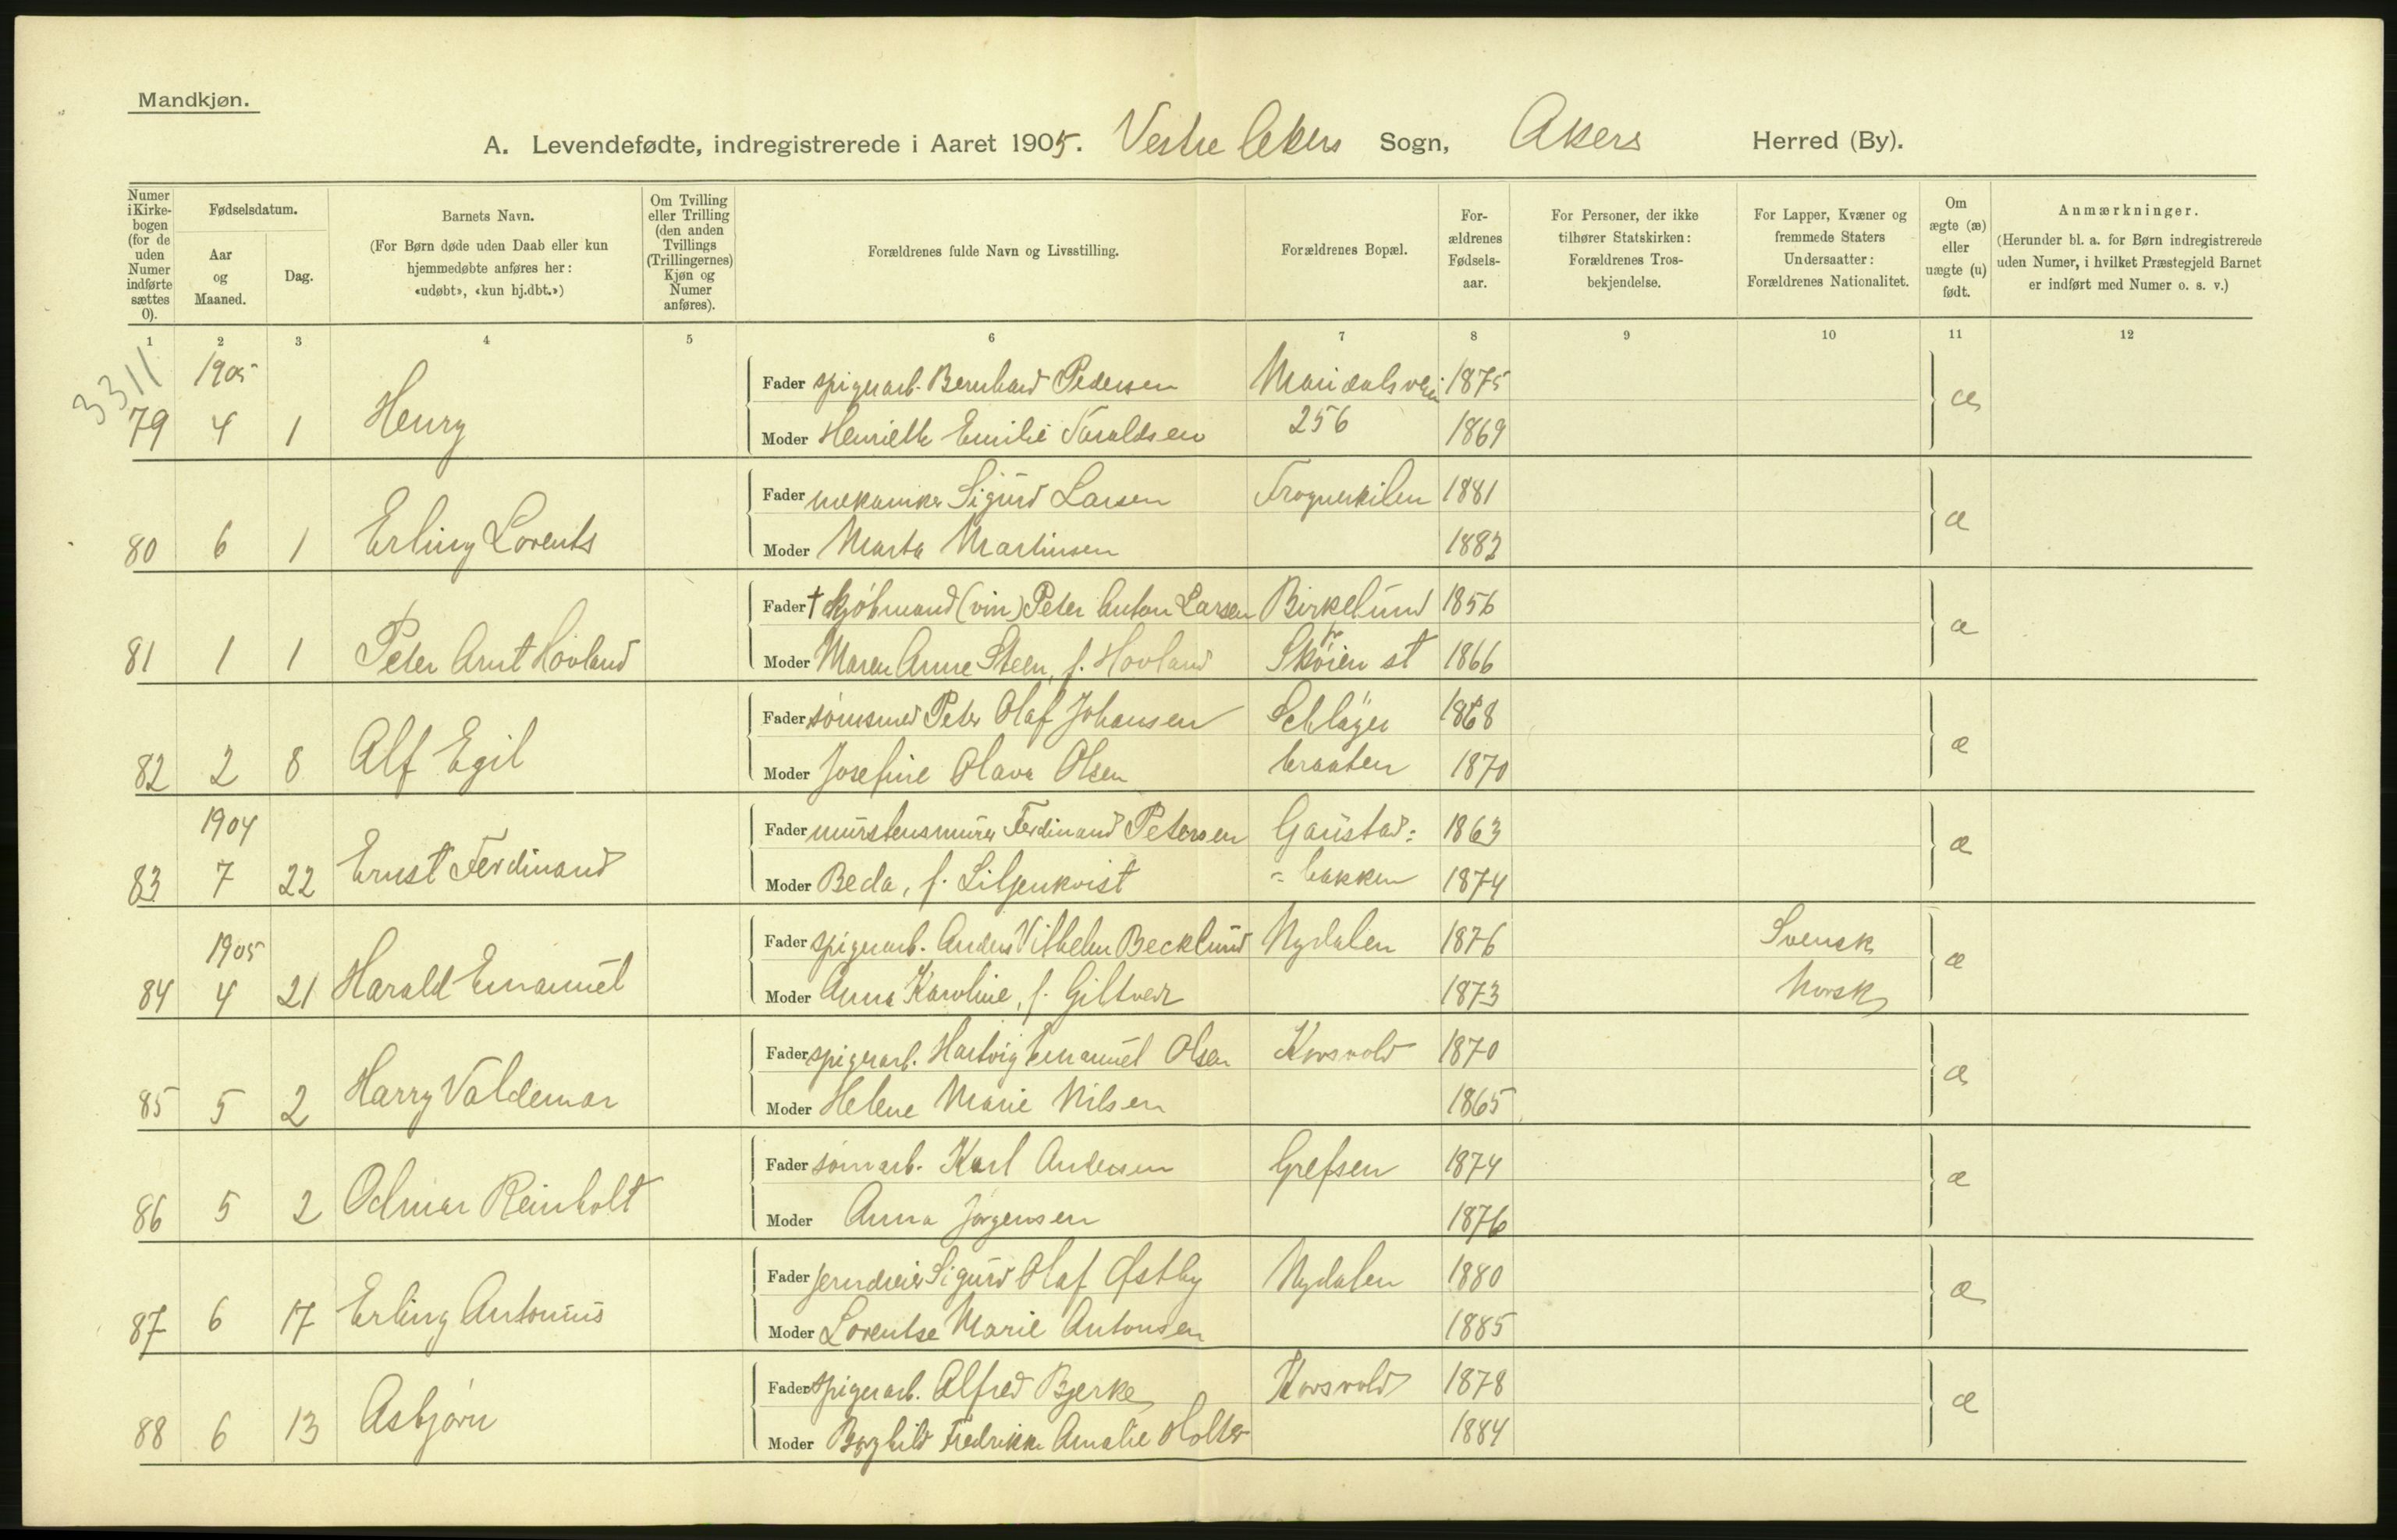 Mandkjøn.
A. Levendefødte, indregistrerede i Aaret 1905. Vestre Akers Sogn, Akers Herred (By).
Numer i Kirke-bogen (for de uden Numer indførte sættes 0).
Fødselsdatum.
Aar og Maaned.
Dag.
Barnets Navn.
(For Børn døde uden Daab eller kun hjemmedøbte anføres her: «udøbt», «kun hj.dbt.»)
Om Tvilling eller Trilling (den anden Tvillings (Trillingernes) Kjøn og Numer anføres).
Forældrenes fulde Navn og Livsstilling.
Forældrenes Bopæl.
For-ældrenes Fødsels-aar.
For Personer, der ikke tilhører Statskirken: Forældrenes Tros-bekjendelse.
For Lapper, Kvæner og fremmede Staters Undersaatter: Forældrenes Nationalitet.
Om ægte (æ) eller uægte (u) født.
Anmærkninger.
(Herunder bl. a. for Børn indregistrerede uden Numer, i hvilket Præstegjeld Barnet er indført med Numer o. s. v.)
1 2 3 4 5 6 7 8 9 10 11 12
3311
1905
Fader spigerarb. Bernhard Pedersen Maridalsvein 1875
79 4 1 Henry Moder Henriette Emilie Taraldsen 256 1869 æ
Fader mekaniker Sigurd Larsen Frognerkilen 1881
80 6 1 Erling Lorents Moder Marta Martinsen 1882 æ
Fader † kjøbmand (vin) Peter Anton Larsen Birkelund 1856
81 1 1 Peter Arnt Hovland Moder Maren Anne Steen, f. Hovland Skøien st 1866 æ
Fader sømsmed Peter Olaf Johansen Schläger 1868
82 2 8 Alf Egil Moder Josefine Olava Olsen braaten 1870 æ
1904
Fader murstensmurer Ferdinand Petersen Gaustad- 1863
83 7 22 Ernst Ferdinand Moder Beda, f. Liljenkvist - bakken 1874 æ
1905
Fader spigerarb. Anders Vilhelm Becklund Nydalen 1876 Svensk
84 4 21 Harald Emanuel Moder Anna Karoline, f. Giltvedt 1873 Norsk æ
Fader spigerarb. Hartvig Emanuel Olsen Korsvold 1870
85 5 2 Harry Valdemar Moder Helene Marie Nilsen 1865 æ
Fader sømarb. Karl Andersen Grefsen 1874
86 5 2 Odmar Reinholt Moder Anna Jørgensen 1876 æ
Fader jerndreier Sigurd Olaf Østby Nydalen 1880
87 6 17 Erling Antonius Moder Lorentse Marie Antonsen 1885 æ
Fader spigerarb. Alfred Bjerke Korsvold 1878
88 6 13 Asbjørn Moder Borghild Fredrikke Amalie Holter 1884 æ